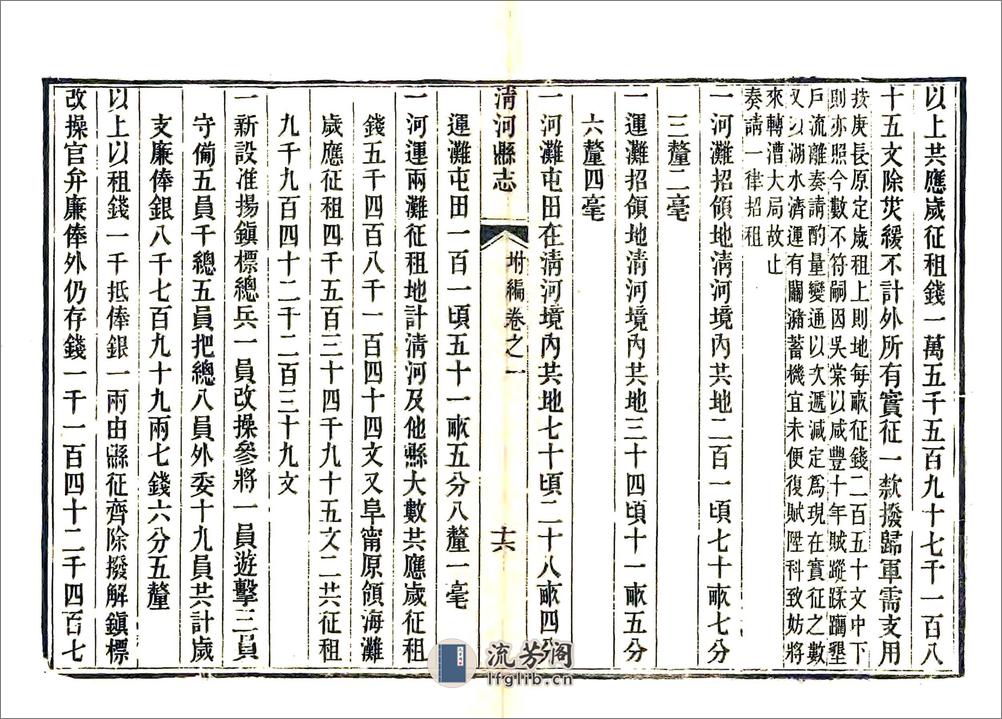 以上共應歲征租錢一萬五千五百九十七千一百八
十五文除災緩不計外所有實征一款撥歸軍需支用
按庚長原定歲租上則地每畝征錢二百五十文中下
則亦照今數不符嗣因吳棠以咸豐十年賊蹤蹂躪墾
戶流離奏請酌量變通以次遞減定爲現在實征之數
又以湖水濟運有關瀦蓄機宜未便復賦陞科致妨將
來轉漕大局故止
奏請一律招租
一河灘招領地淸河境內共地二百一頃七十畝七分
三釐二毫
一運灘招領地淸河境內共地三十四頃十一畝五分
六釐四毫
一河灘屯田在淸河境內共地七十頃二十八畝四分
淸河縣志
坿編卷之一
十六
運灘屯田一百一頃五十一畝五分八釐一毫
一河運兩灘征租地計淸河及他縣大數共應歲征租
錢五千四百八千一百四十四文又阜甯原領海灘
歲應征租四千五百三十四千九十五文二共征租
九千九百四十二千二百三十九文
一新設准揚鎭標總兵一員改操參將一員遊擊三員
守備五員千總五員把總八員外委十九員共計歲
支廉俸銀八千七百九十九兩七錢六分五釐
以上以租錢一千抵俸銀一兩由縣征齊除撥解鎭標
改操官弁廉俸外仍存錢一千一百四十二千四百七
流芳阁
lfglib.cn